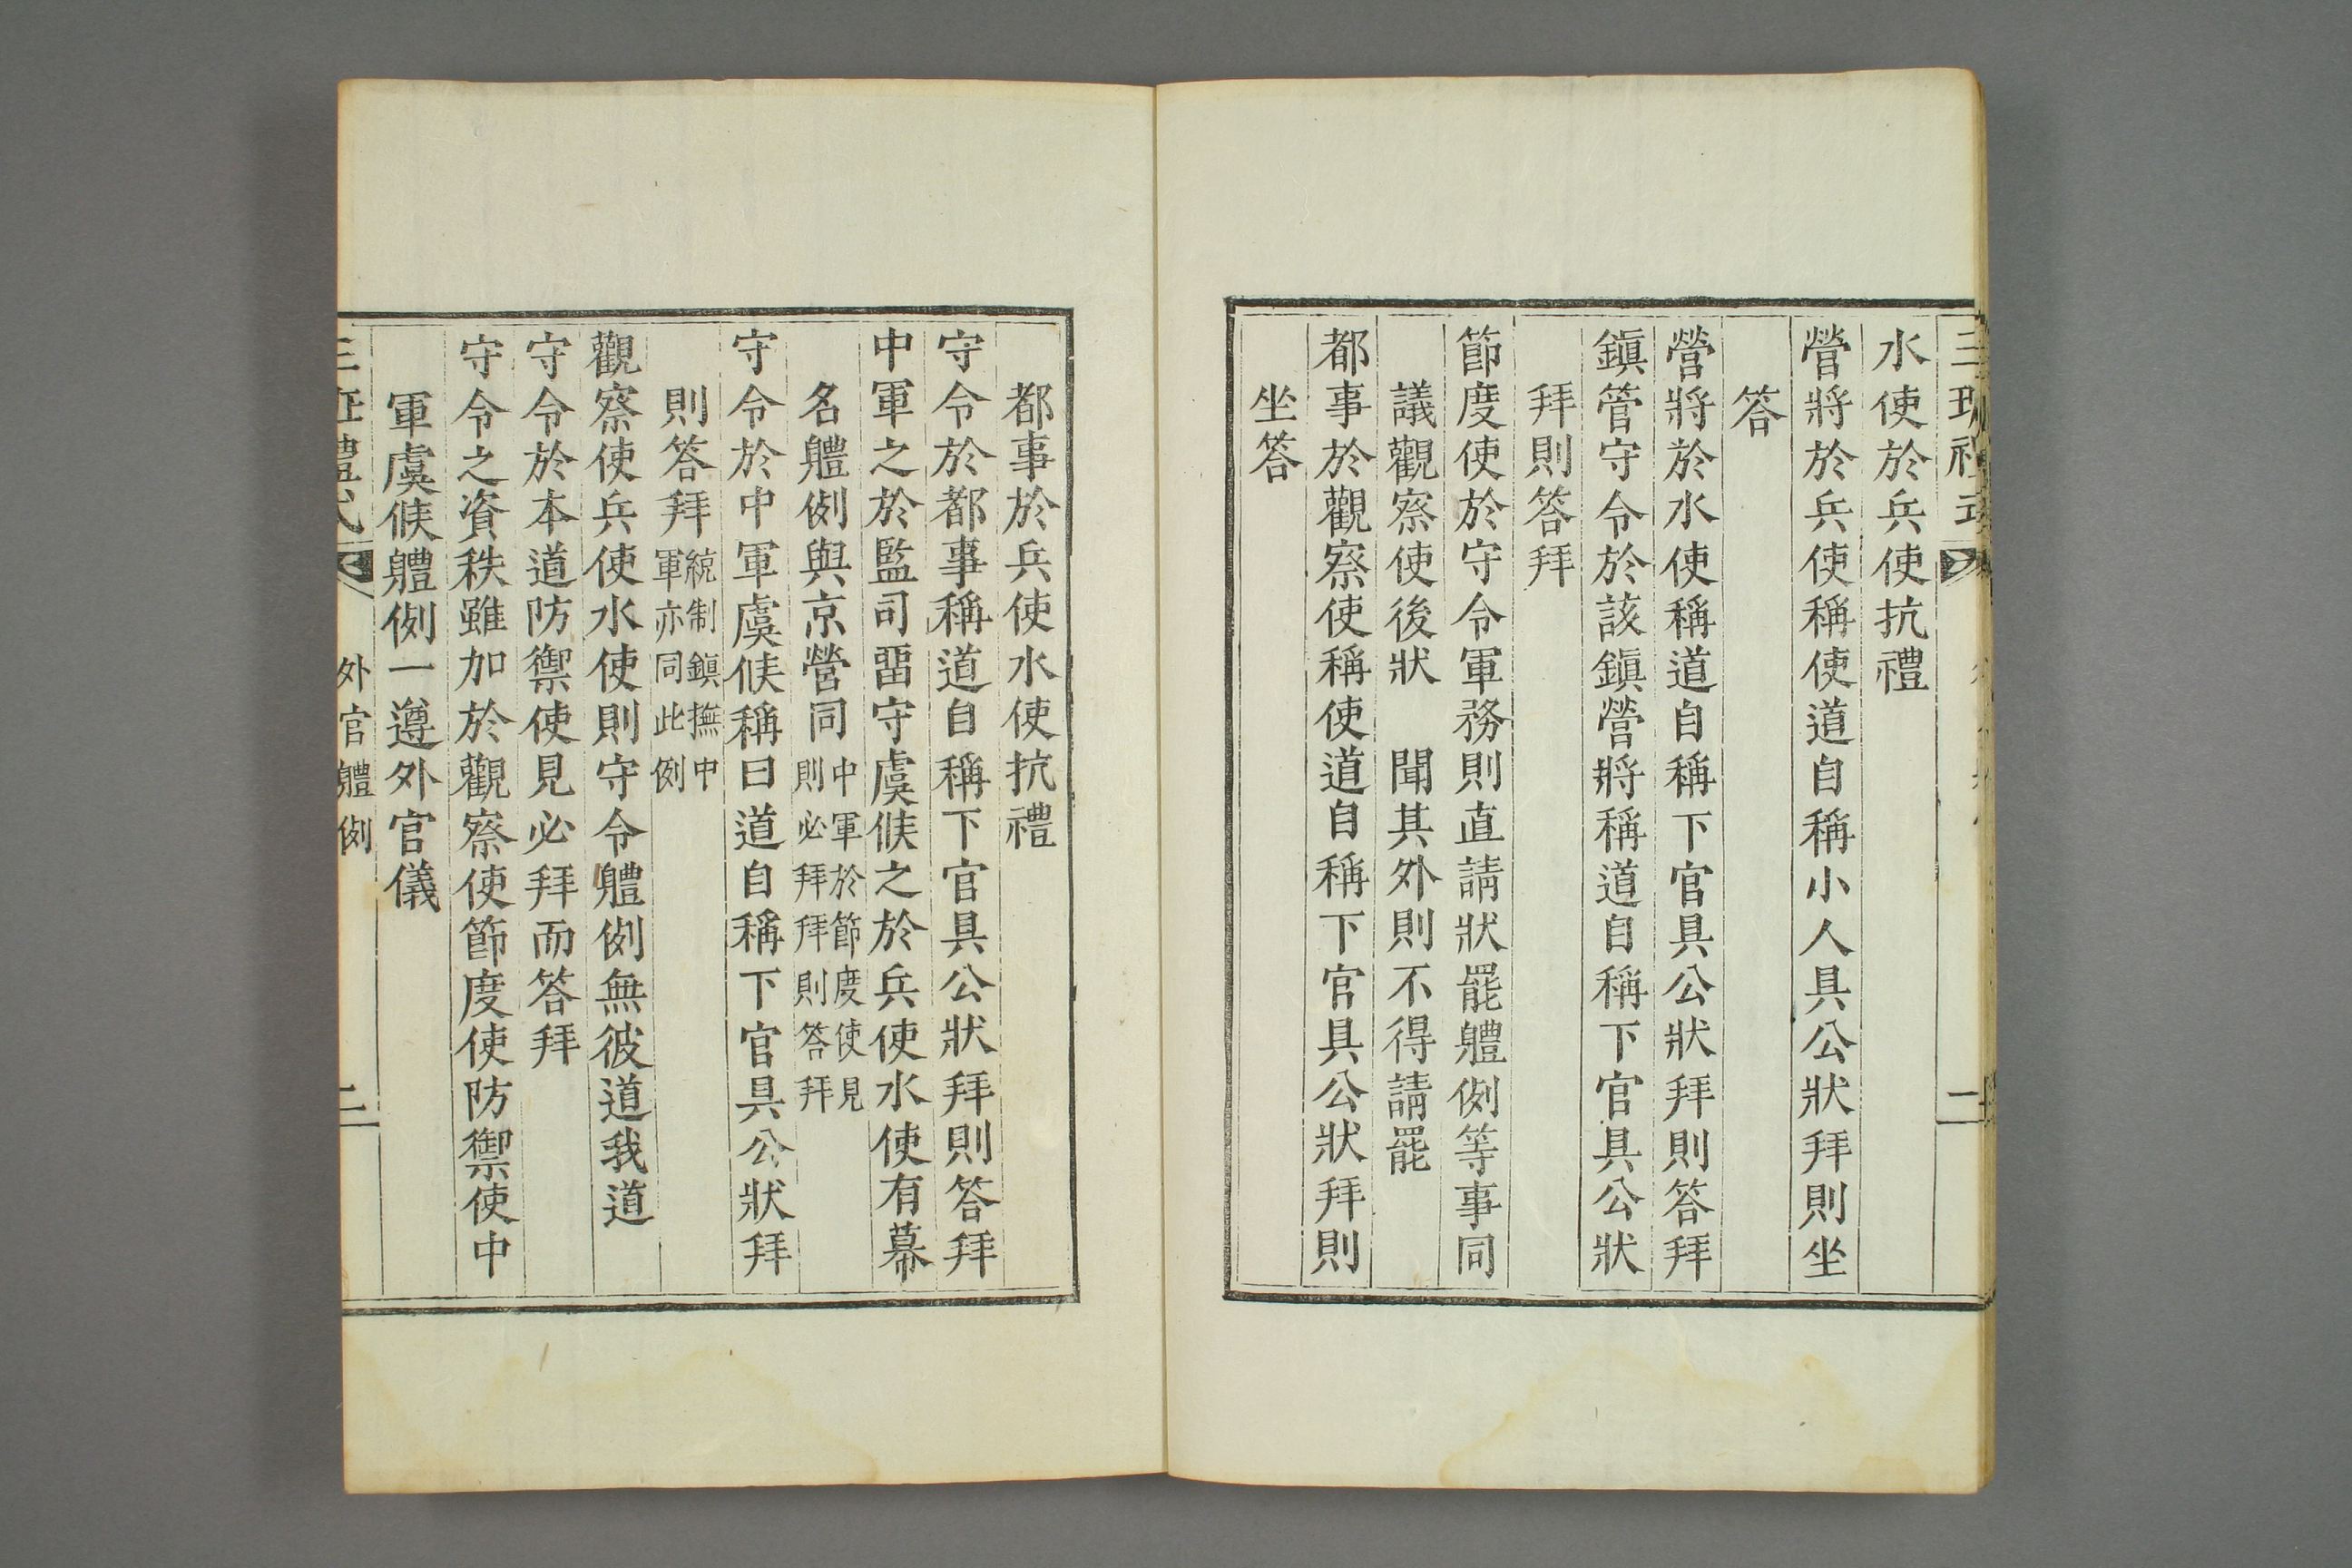 水使於兵使抗禮
營將於兵使稱使道自稱小人具公狀拜則坐
答
營將於水使稱道自稱下官具公狀拜則答拜
鎭管守令於該鎭營將稱道自稱下官具公狀
拜則答拜
節度使於守令軍務則直請狀罷軆例等事同
議觀察使後狀 聞其外則不得請罷
都事於觀察使稱使道自稱下官具公狀拜則
坐答
都事於兵使水使抗禮
守令於都事稱道自稱下官具公狀拜則答拜
中軍之於監司畱守虞候之於兵使水使有幕
名軆例與京營同中軍於節度使見
則必拜拜則答拜
守令於中軍虞候稱曰道自稱下官具公狀拜
則答拜統制鎭撫中
軍亦同此例
觀察使兵使水使則守令軆例無彼道我道
守令於本道防禦使見必拜而答拜
守令之資秩雖加於觀察使節度使防禦使中
軍虞候軆例一遵外官儀
外官軆例 二